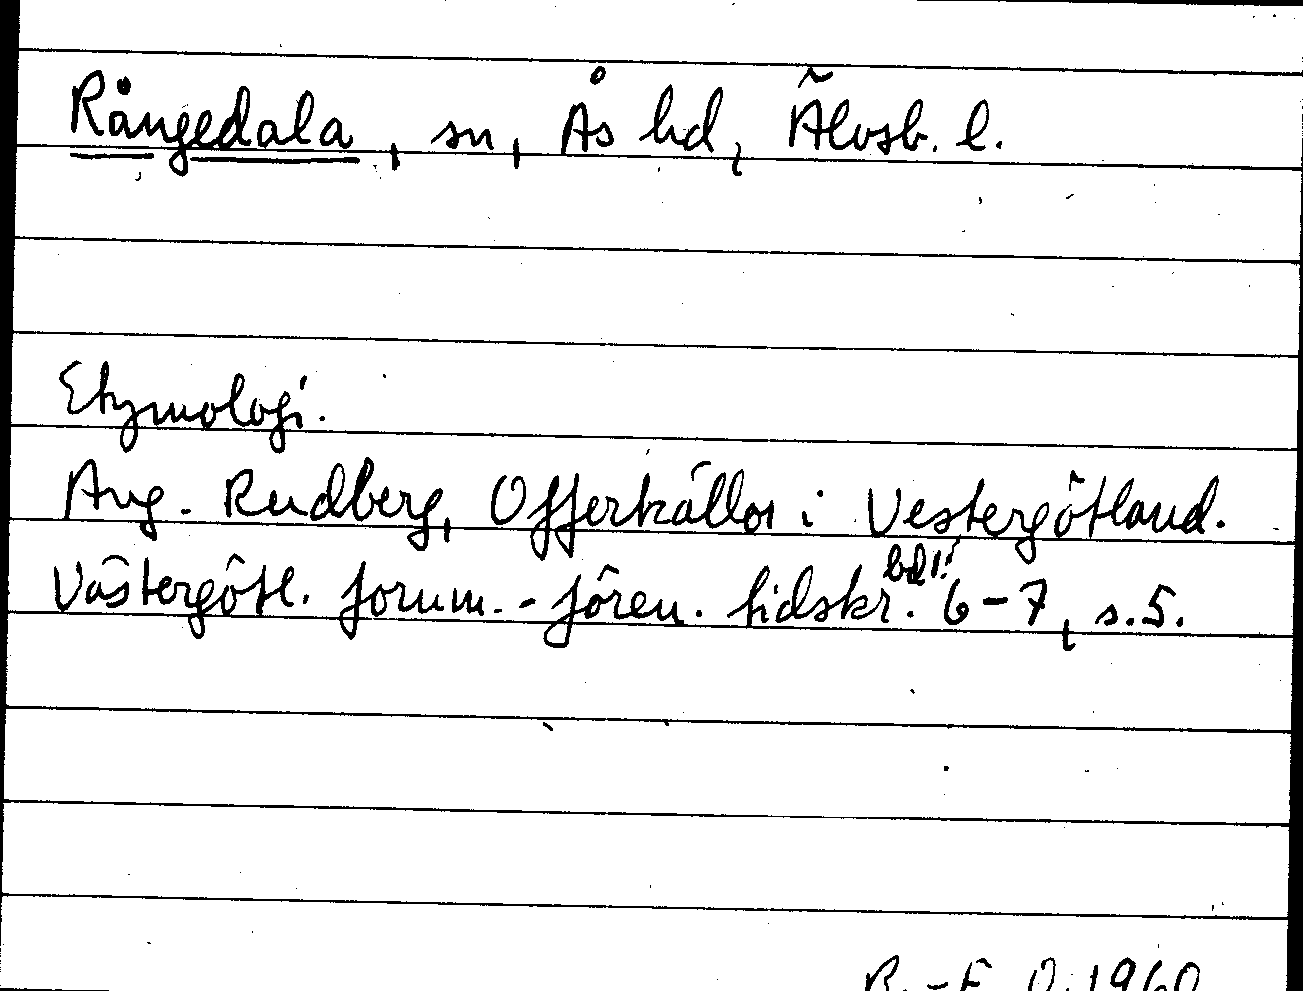 Rångedala, sn, Ås hd, Älvsb. l.
Etymologi.
Aug. Rudberg, Offerkällor i Vestergötland.
Västergötl. fornm.-fören. tidskr. bd 1: 6-7, s. 5.
R.-F. O. 1960